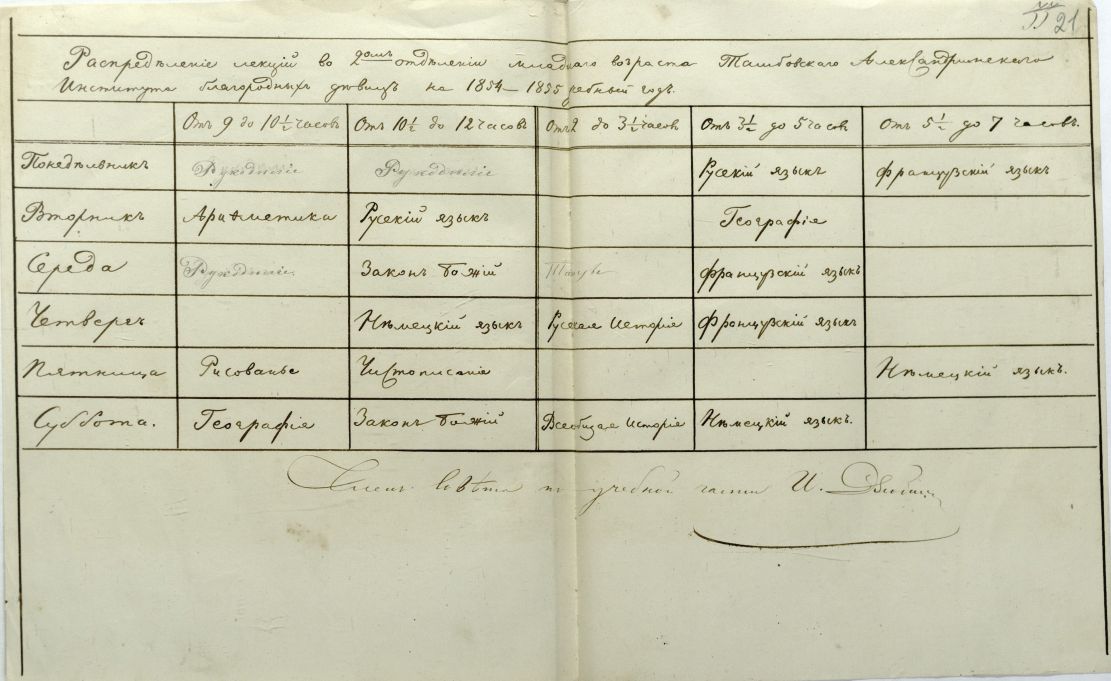 21
Распредѣленіе лекцій во 2домъ отдѣленіи младшаго возраста Тамбовскаго Александринскаго
Института благородныхъ дѣвицъ на 1854–1855 учебный годъ.
Отъ 9 до 10 1/2 часовъ Отъ 10 1/2 до 12 часовъ Отъ 2 до 3 1/2 часовъ Отъ 3 1/2 до 5 часовъ Отъ 5 1/2 до 7 часовъ.
Понедѣльникъ Рукодѣліе Рукодѣліе Русскій языкъ Французскій языкъ
Вторникъ Ариѳметика Русскій языкъ Географія
Середа Рукодѣліе Законъ Божій Танцы Французскій языкъ
Четвергъ Нѣмецкій языкъ Русская Исторія Французскій языкъ
Пятница Рисованье Чистописаніе Нѣмецкій языкъ.
Суббота. Географія Законъ Божій Всеобщая Исторія Нѣмецкій языкъ.
Членъ Совѣта по учебной части И.